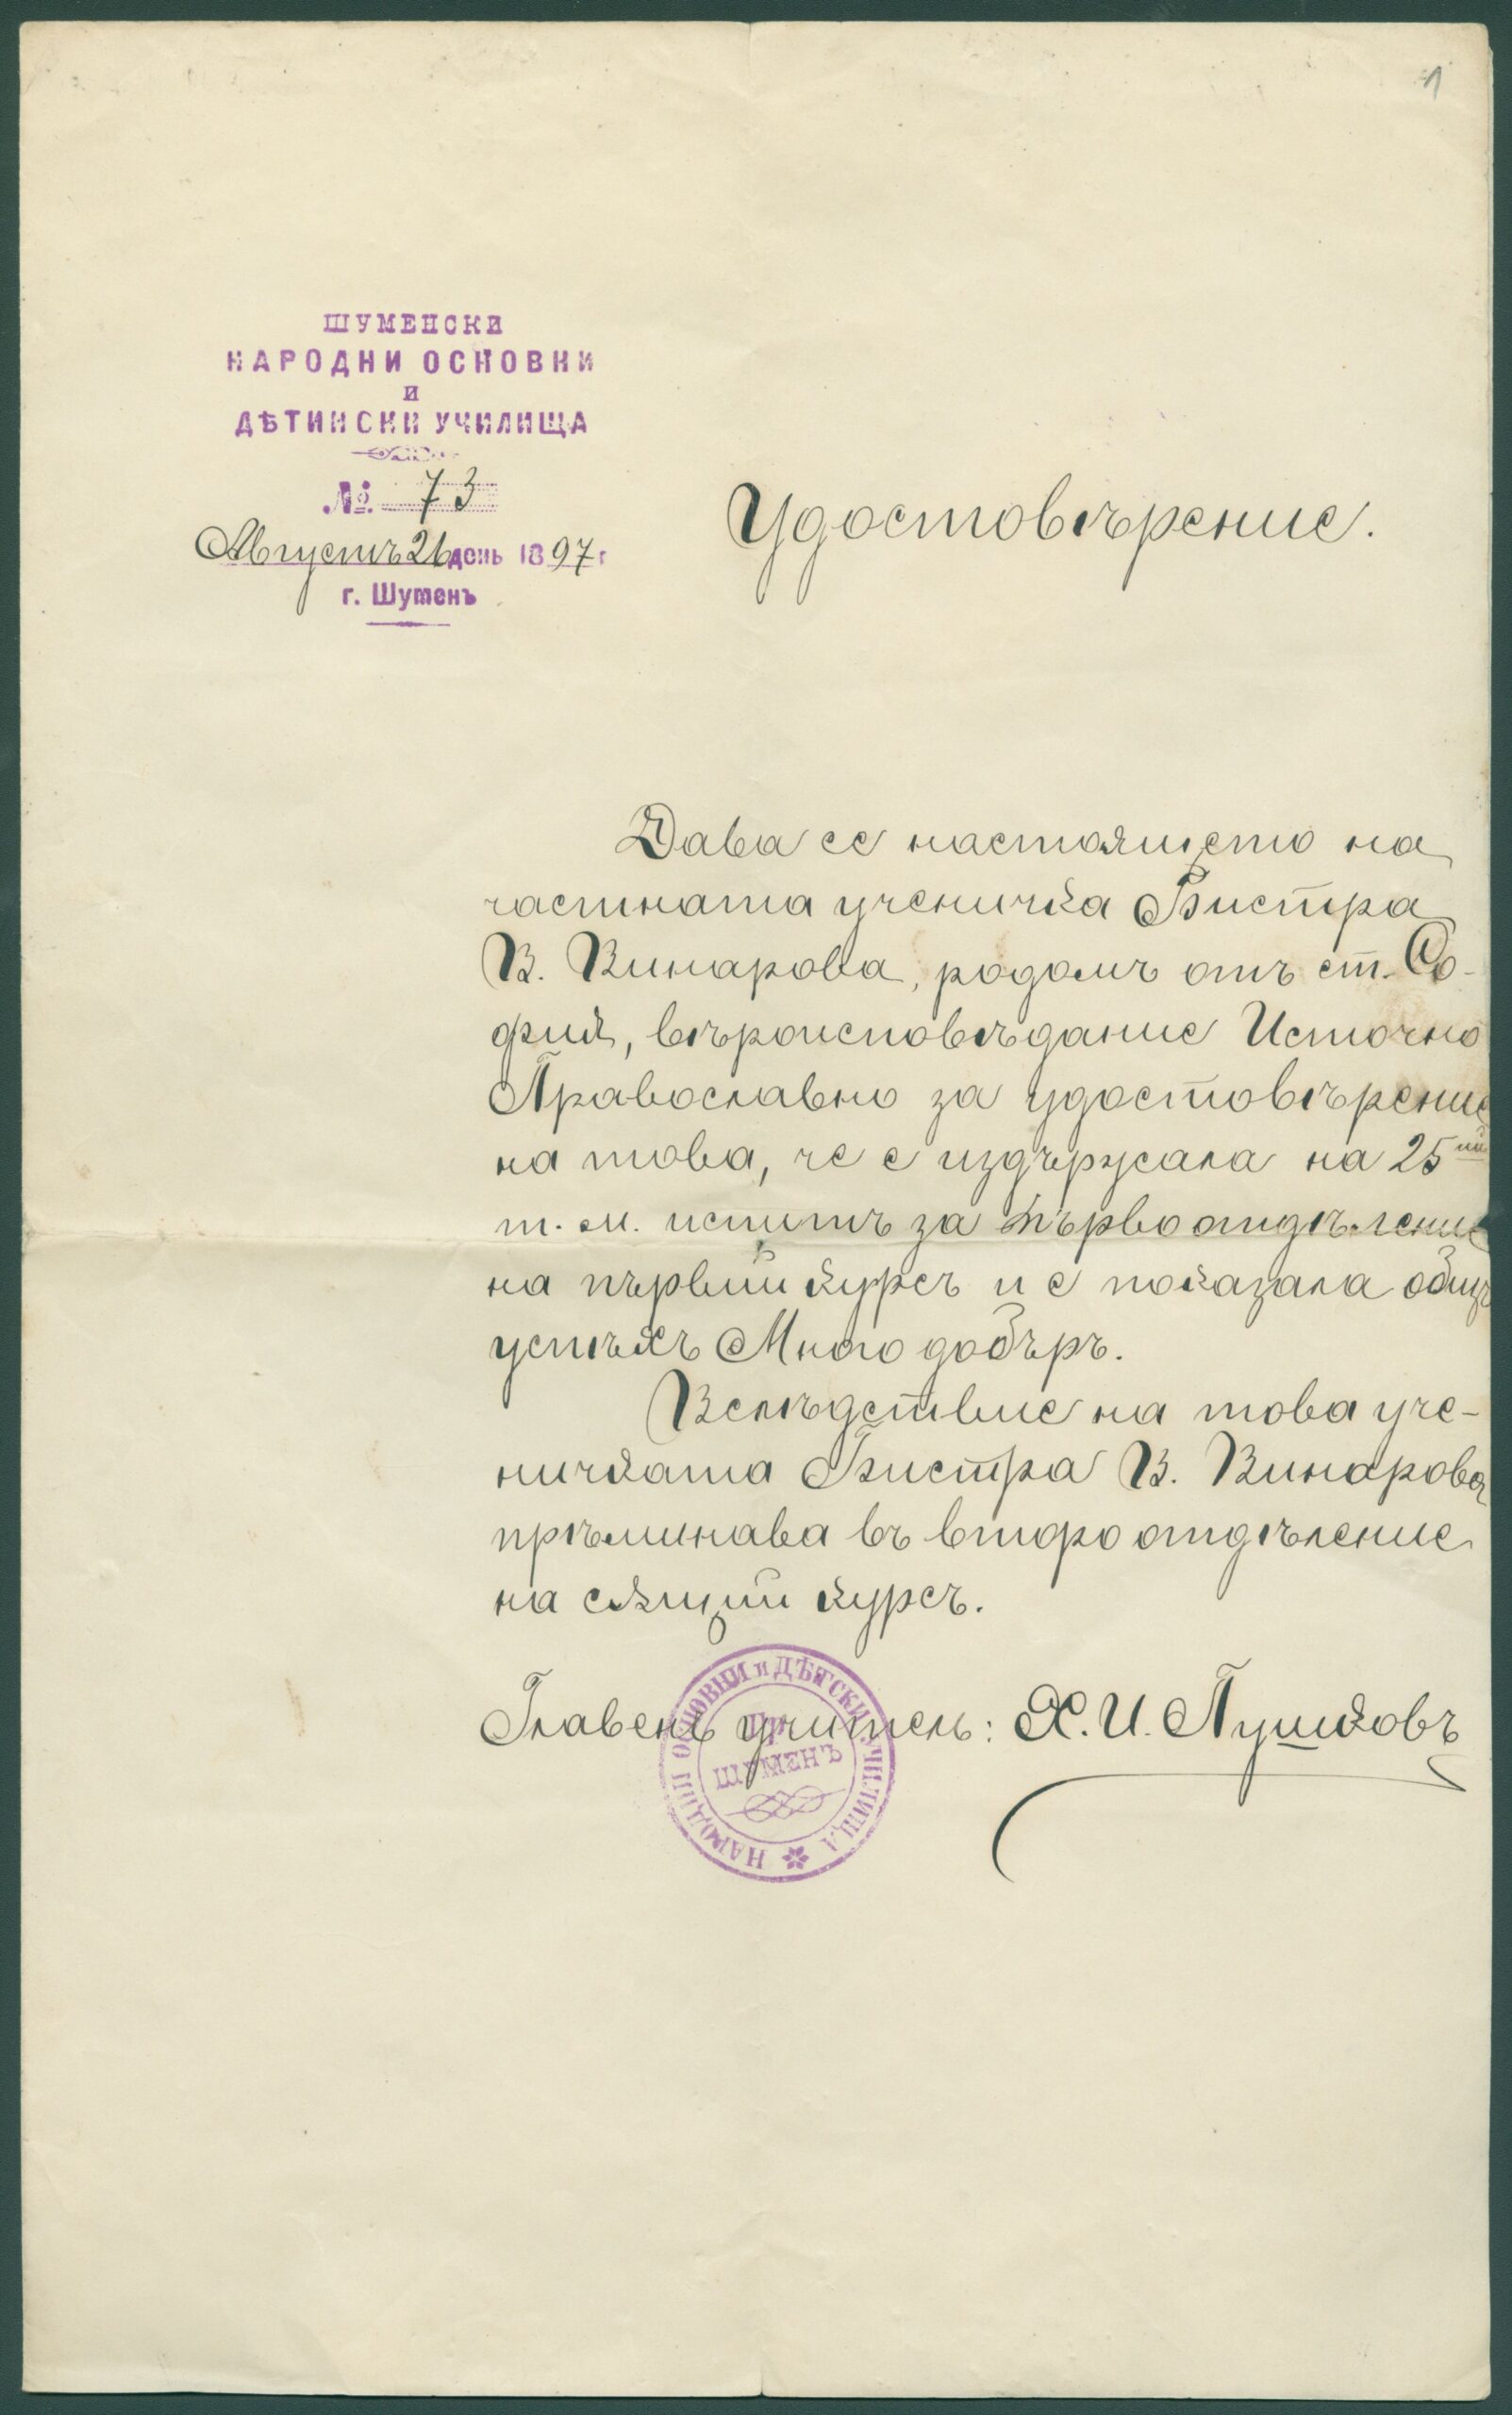 1
ШУМЕНСКИ
НАРОДНИ ОСНОВНИ
И
ДѢТИНСКИ УЧИЛИЩА
№ 73
Августъ 26 день 1897 г.
г. Шуменъ
Удостовѣрение.
Дава се настоящето на
частната ученичка Бистра
В. Винарова, родомъ отъ ст. Со-
фия, вѣроисповѣдание Источно
Православно за удостовѣрение
на това, че е издържала на 25ий
т. м. испитъ за първо отдѣление
на първий курсъ и е показала общъ
успѣхъ Много добъръ.
Вслѣдствие на това уче-
ничката Бистра В. Винарова
прѣминава въ второ отдѣление
на сѫщий курсъ.
Главенъ учитель: Х. И. Пушковъ
НАРОДНИ ОСНОВНИ и ДѢТСКИ УЧИЛИЩА
Гр.
ШУМЕНЪ